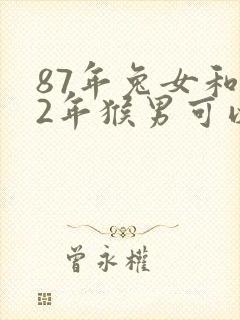 87年兔女和
2年猴男可以
曾永權